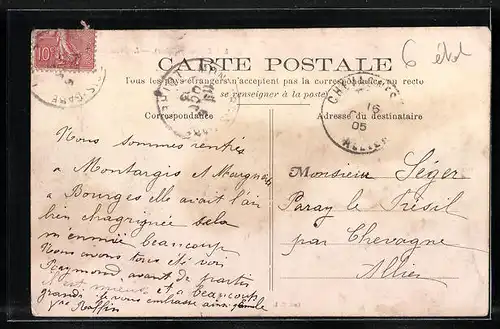 6 étol
10c
CARTE POSTALE
Tous les pays étrangers n'acceptent pas la correspondance au recto
se renseigner à la poste
Correspondance
Adresse du destinataire
16
05
ALLIER
Nous sommes rentrés
a Montargis et Marguerite
a Bourges elle avait l'air
bien chagrignée sela
m'ennuie beaucoup
Nous avons tous été voir
Reymond avant de partir
il est mieux et a beaucoup
grandi je vous embrasse ainsi
Vve Raffin
Monsieur Séger
Paray le Frésil
par Chevagne
Allier